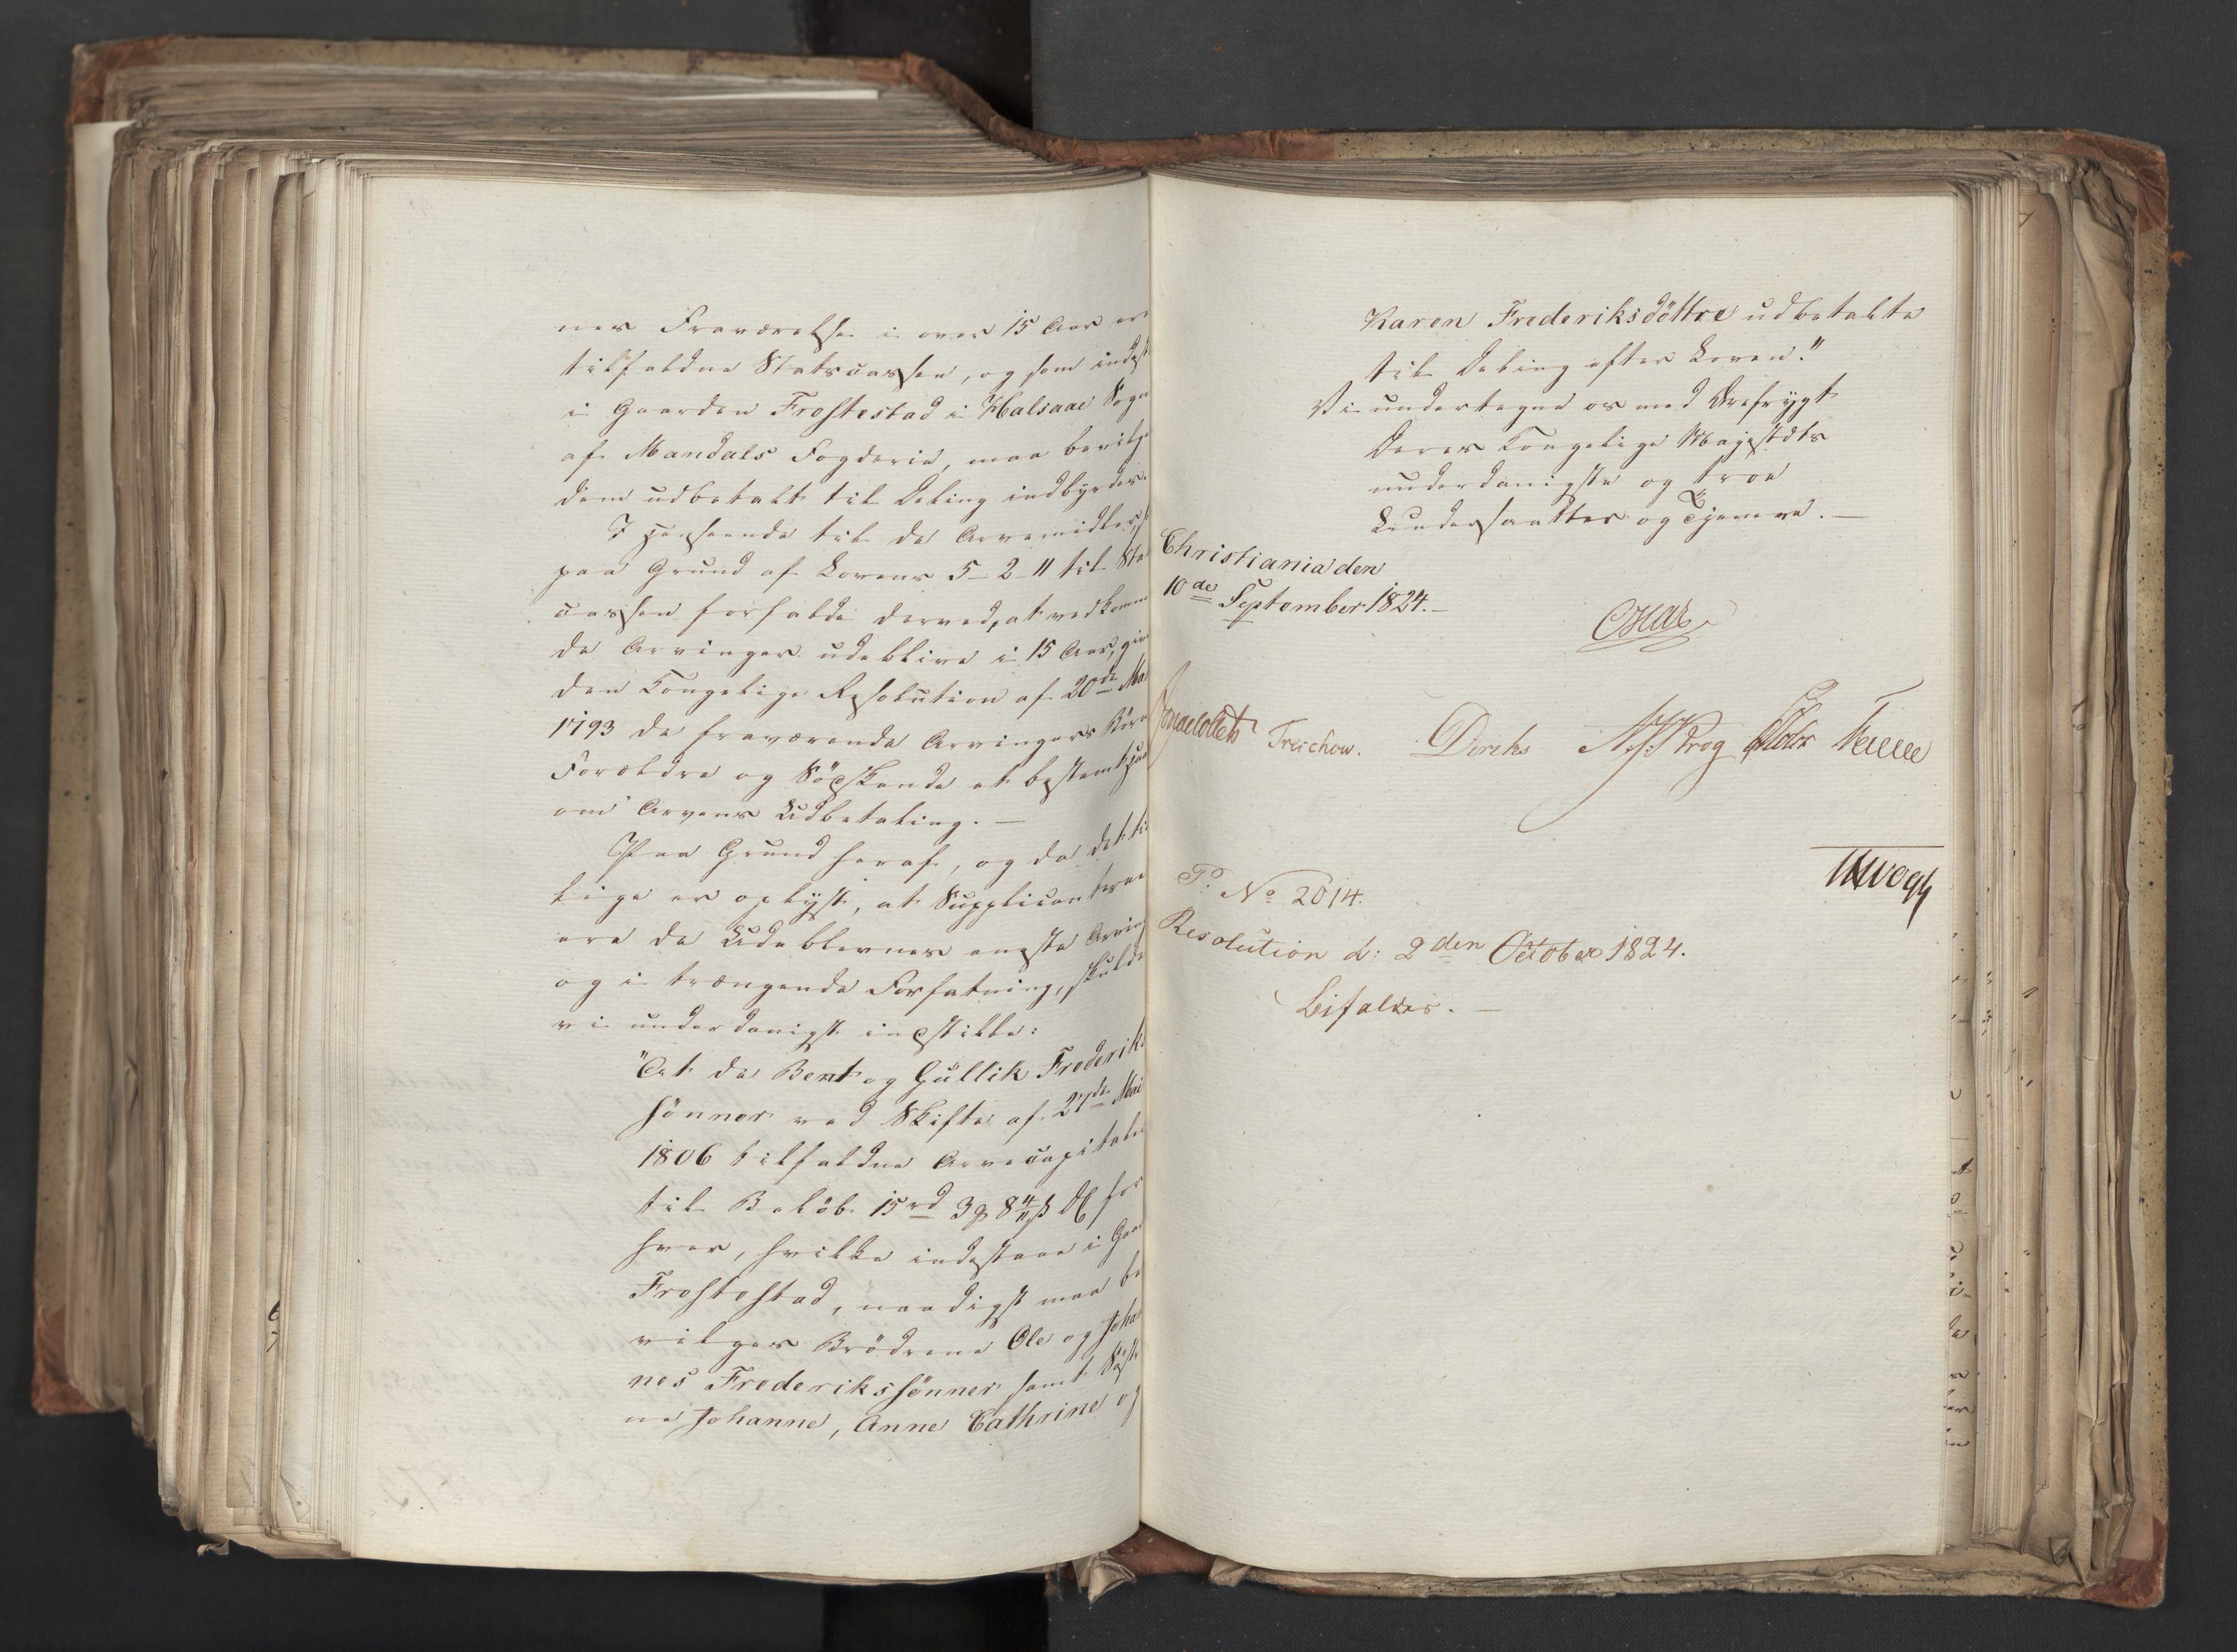 nes Fraværelse i over 15 Aar ere
tilfaldne Statscassen, og som indest
i Gaarden Frostestad i Halsaae Sogn
af Mandals Fogderie, maa bevilge
dem udbetalt til Deling indbyrdes.
I Henseende til de Arvemidler,
paa Grund af Lovens 5-2-11 til Sta
cassen forfalde derved, at vedkomm
de Arvinger udeblive i 15 Aar, giv
den Kongelige Resolution af 20de Ma
1793 de fraværende Arvingers Börn
Forældre og Södskende et bestemt
om Arvens Udbetaling. —
Paa Grund heraf, og da det ti
lige er oplyst, at Supplicanterne
ere de Udeblevnes eneste Arving
og i trængende Forfatning, skulde
vi underdanigst indstille:
"At de Bent og Gullik Frederik
sönner ved Skifte af 27de Mai
1806 tilfaldne Arvecapitaler
til Belöb 15rd 3 8 4/11 ß for
hver, hvilke indestaae i Gaar
Frostestad, naadigst maa be
vilges Brödrene Ole og Joha
nes Frederikssönner samt Söst
ne Johanne, Anne Cathrine og
Karen Frederiksdöttre udbetalte
til Deling efter Loven."
Vi undertegne os med Ærefrygt
Deres Kongelige Majestæts
underdanigste og troe
Undersaatter og Tjenere. —
Christiania den
10de September 1824. —
Jonas Collett Treschow. Diriks Krog Motzfeldt Fasting
P: No 2014.
Vogt
Resolution d: 2den October 1824.
Bifaldes. —